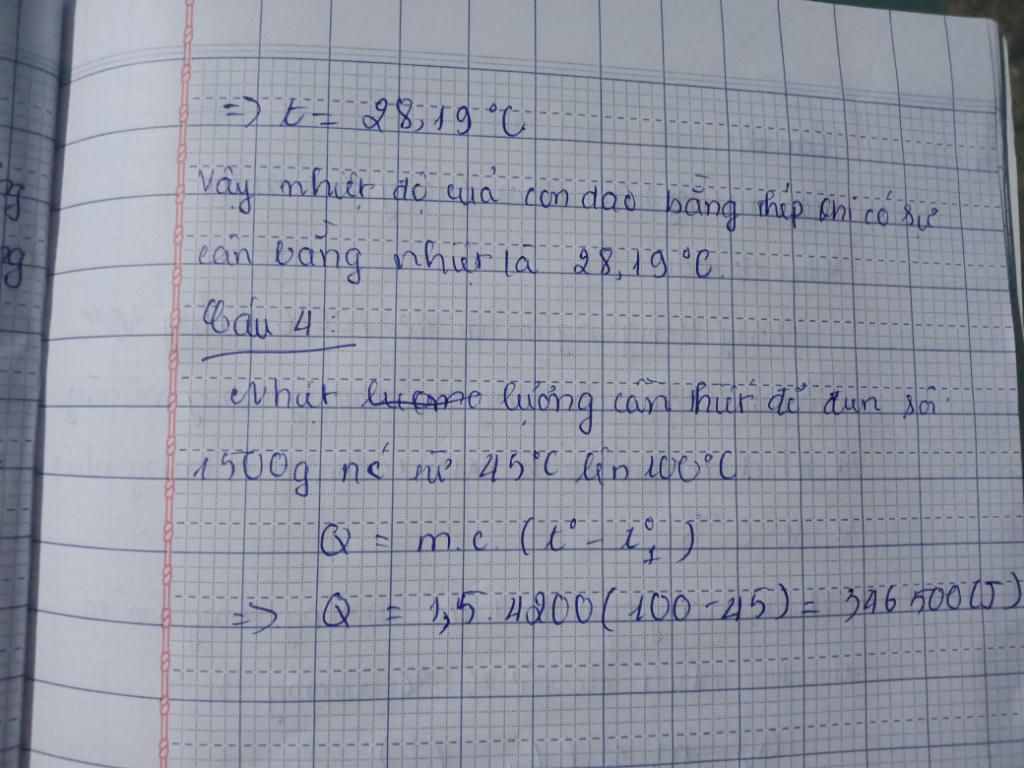 => t = 28,19 °C
Vậy nhiệt độ của con dao bằng thép khi có sự
cân bằng nhiệt là 28,19 °C
Câu 4:
Nhiệt lượng cần thiết để đun sôi
1500g nc từ 45°C lên 100°C
Q = m.c. (t° - t°₁)
=> Q = 1,5. 4200 (100 - 45) = 346 500 (J)
pg
pg